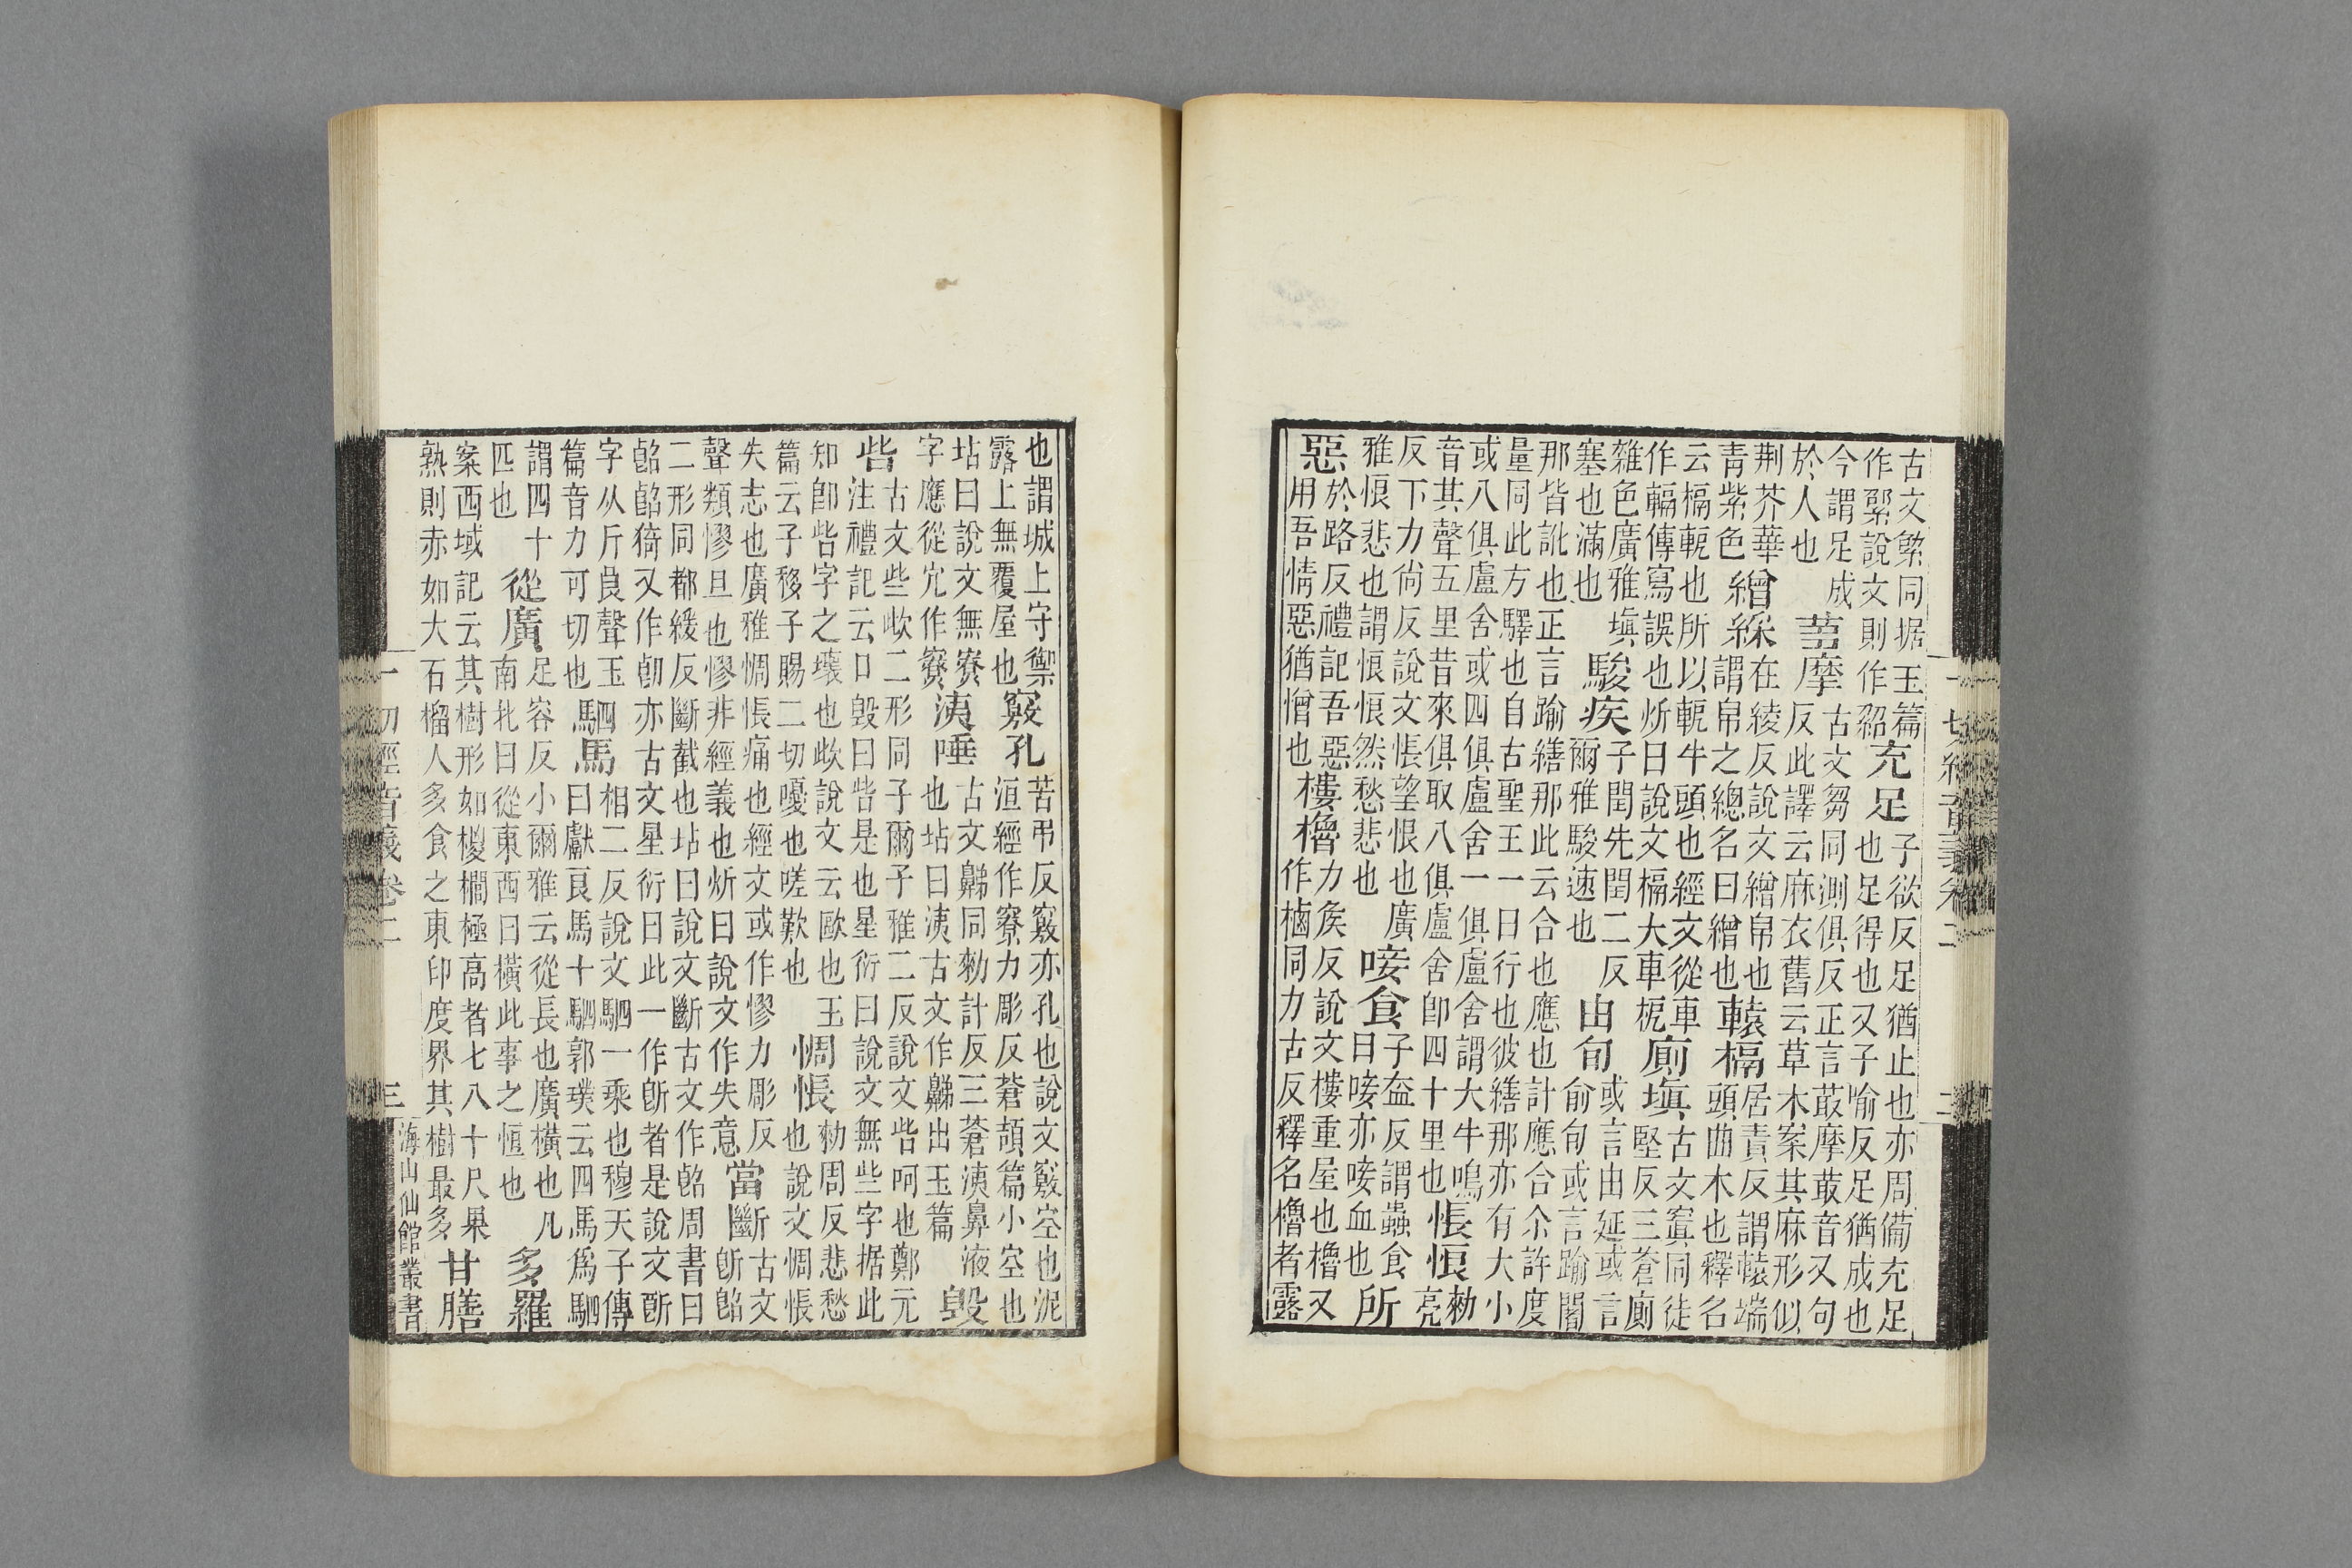 一切經音義卷二 二
古文緐同据玉篇
作綮說文則作紹
充足
子欲反足猶止也亦周備充足
也足得也又子喻反足猶成也
今謂足成
於人也
蒭摩
古文芻同測俱反正言菆摩菆音又句
反此譯云麻衣舊云草木案其麻形似
荆芥華
青紫色
繒綵
在綾反說文繒帛也
謂帛之總名曰繒也
轅槅
居責反謂轅端
頭曲木也釋名
云槅軛也所以軛牛頭也經文從車
作輻傳寫誤也炘曰說文槅大車枙
廁填
古文窴同徒
堅反三蒼廁
雜色廣雅填
塞也滿也
駿疾
子閏先閏二反
爾雅駿速也
由旬
或言由延或言
俞旬或言踰闍
那皆訛也正言踰繕那此云合也應也計應合尒許度
量同此方驛也自古聖王一日行也彼繕那亦有大小
或八俱盧舍或四俱盧舍一俱盧舍謂大牛鳴
音其聲五里昔來俱取八俱盧舍卽四十里也
悵悢
勑
亮
反下力尙反說文悵望恨也廣
雅悢悲也謂悢悢然愁悲也
唼食
子盍反謂蟲食
曰唼亦唼血也
所
惡
於路反禮記吾惡
用吾情惡猶憎也
樓櫓
力矦反說文樓重屋也櫓又
作樐同力古反釋名櫓者露
也謂城上守禦
露上無覆屋也
竅孔
苦弔反竅亦孔也說文竅空也泥
洹經作竂力彫反蒼頡篇小空也
坫曰說文無竂
字應從穴作寮
洟唾
古文同勑計反三蒼洟鼻液
也坫曰洟古文作出玉篇
毁
呰
古文些㱔二形同子爾子雅二反說文呰呵也鄭元
注禮記云口毁曰呰是也星衍曰說文無些字据此
知卽呰字之壞也㱔說文云歐也玉
篇云子移子賜二切嗄也嗟歎也
惆悵
勑周反悲愁
也說文惆悵
失志也廣雅惆悵痛也經文或作憀力彫反
聲類憀旦也憀非經義也炘曰說文作失意
當斷
古文
二形同都緩反斷截也坫曰說文斷古文作周書曰
猗又作亦古文星衍曰此一作者是說文
字从斤良聲玉
篇音力可切也
駟馬
相二反說文駟一乘也穆天子傳
曰獻良馬十駟郭璞云四馬爲駟
謂四十
匹也
從廣
足容反小爾雅云從長也廣橫也凡
南北曰從東西曰橫此事之恆也
多羅
案西域記云其樹形如椶櫚極高者七八十尺果
熟則赤如大石榴人多食之東印度界其樹最多
甘膳
一切經音義卷二 三
海山仙館叢書